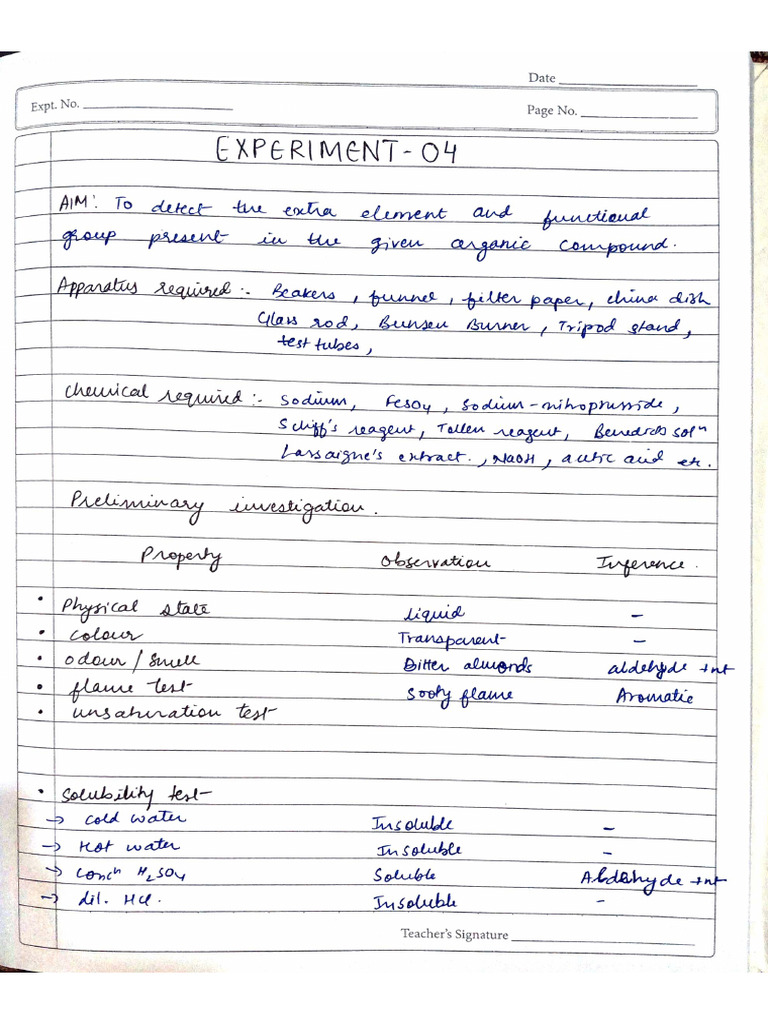 Date
Expt. No.
Page No.
EXPERIMENT-04
AIM: To detect the extra element and functional
group present in the given organic compound.
Apparatus required:- Beakers, funnel, filter paper, china dish
Glass rod, Bunsen Burner, Tripod stand,
test tubes,
Chemical required:- Sodium, FeSO4, Sodium-nitroprusside,
Schiff's reagent, Tollen reagent, Benedicts solⁿ
Lassaigne's extract., NaOH, acetic acid etc.
Preliminary investigation.
Property Observation Inference.
• Physical state liquid -
• Colour Transparent -
• Odour/Smell Bitter almonds aldehyde +nt
• flame test Sooty flame Aromatic
• unsaturation test
• Solubility test-
→ Cold water Insoluble -
→ Hot water Insoluble -
→ Concn H2SO4 Soluble Aldehyde +nt
→ dil. HCl. Insoluble -
Teacher's Signature